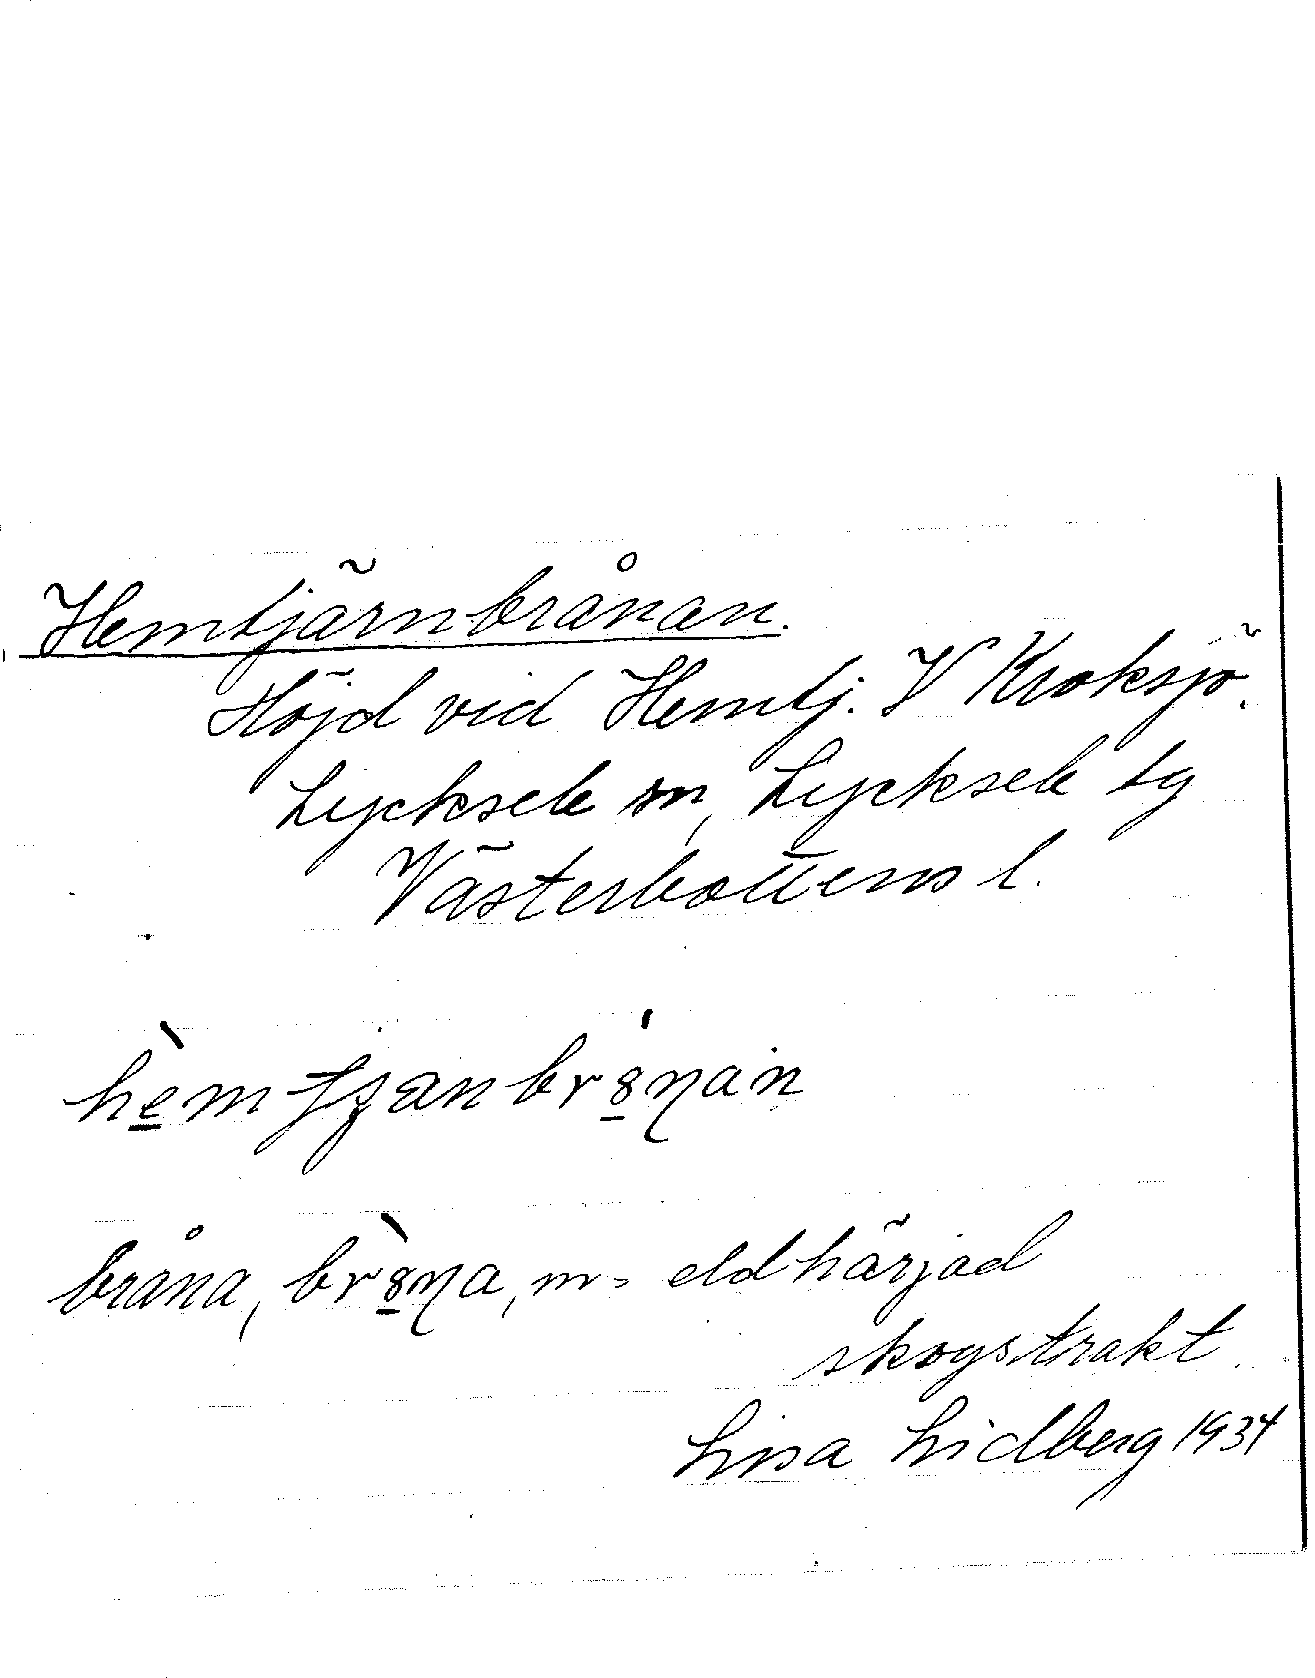 Hemtjärnbrånan.
Höjd vid Hemtj. V Kroksjö.
Lycksele sn, Lycksele tg
Västerbottens l.
bråna, m = eldhärjad
skogstrakt
Lisa Lidberg 1934